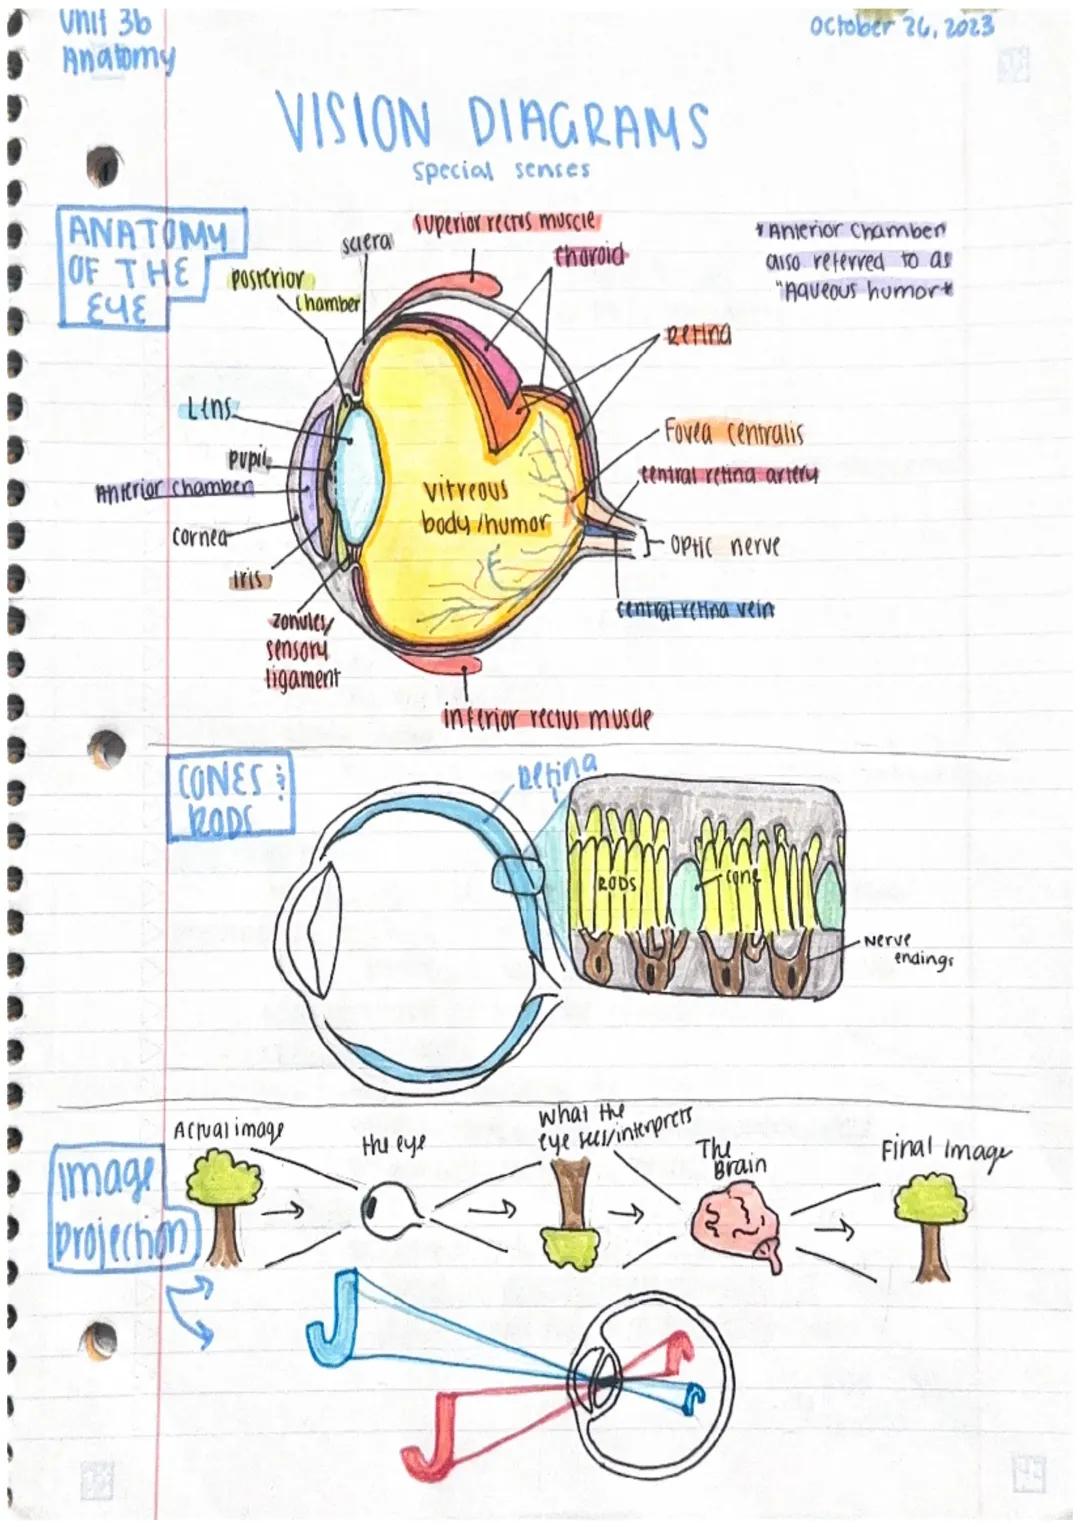 Unit 3b
Anatomy
October 26, 2023
VISION DIAGRAMS
special senses
ANATOMY
OF THE
EYE
superior rectus muscle
sclera
choroid
posterior
chamber
*Anterior Chamber
also referred to as
"Aqueous humor*
Retina
Lens
Fovea centralis
pupil
central retina artery
Anterior chamber
vitreous
body/humor
cornea
optic nerve
iris
central retina vein
zonules/
sensory
ligament
inferior rectus muscle
CONES &
RODS
Retina
RODS
cone
Nerve
endings
Image
projection
Actual image
the eye
What the
eye sees/interprets
The
Brain
Final Image
J
J
J
J